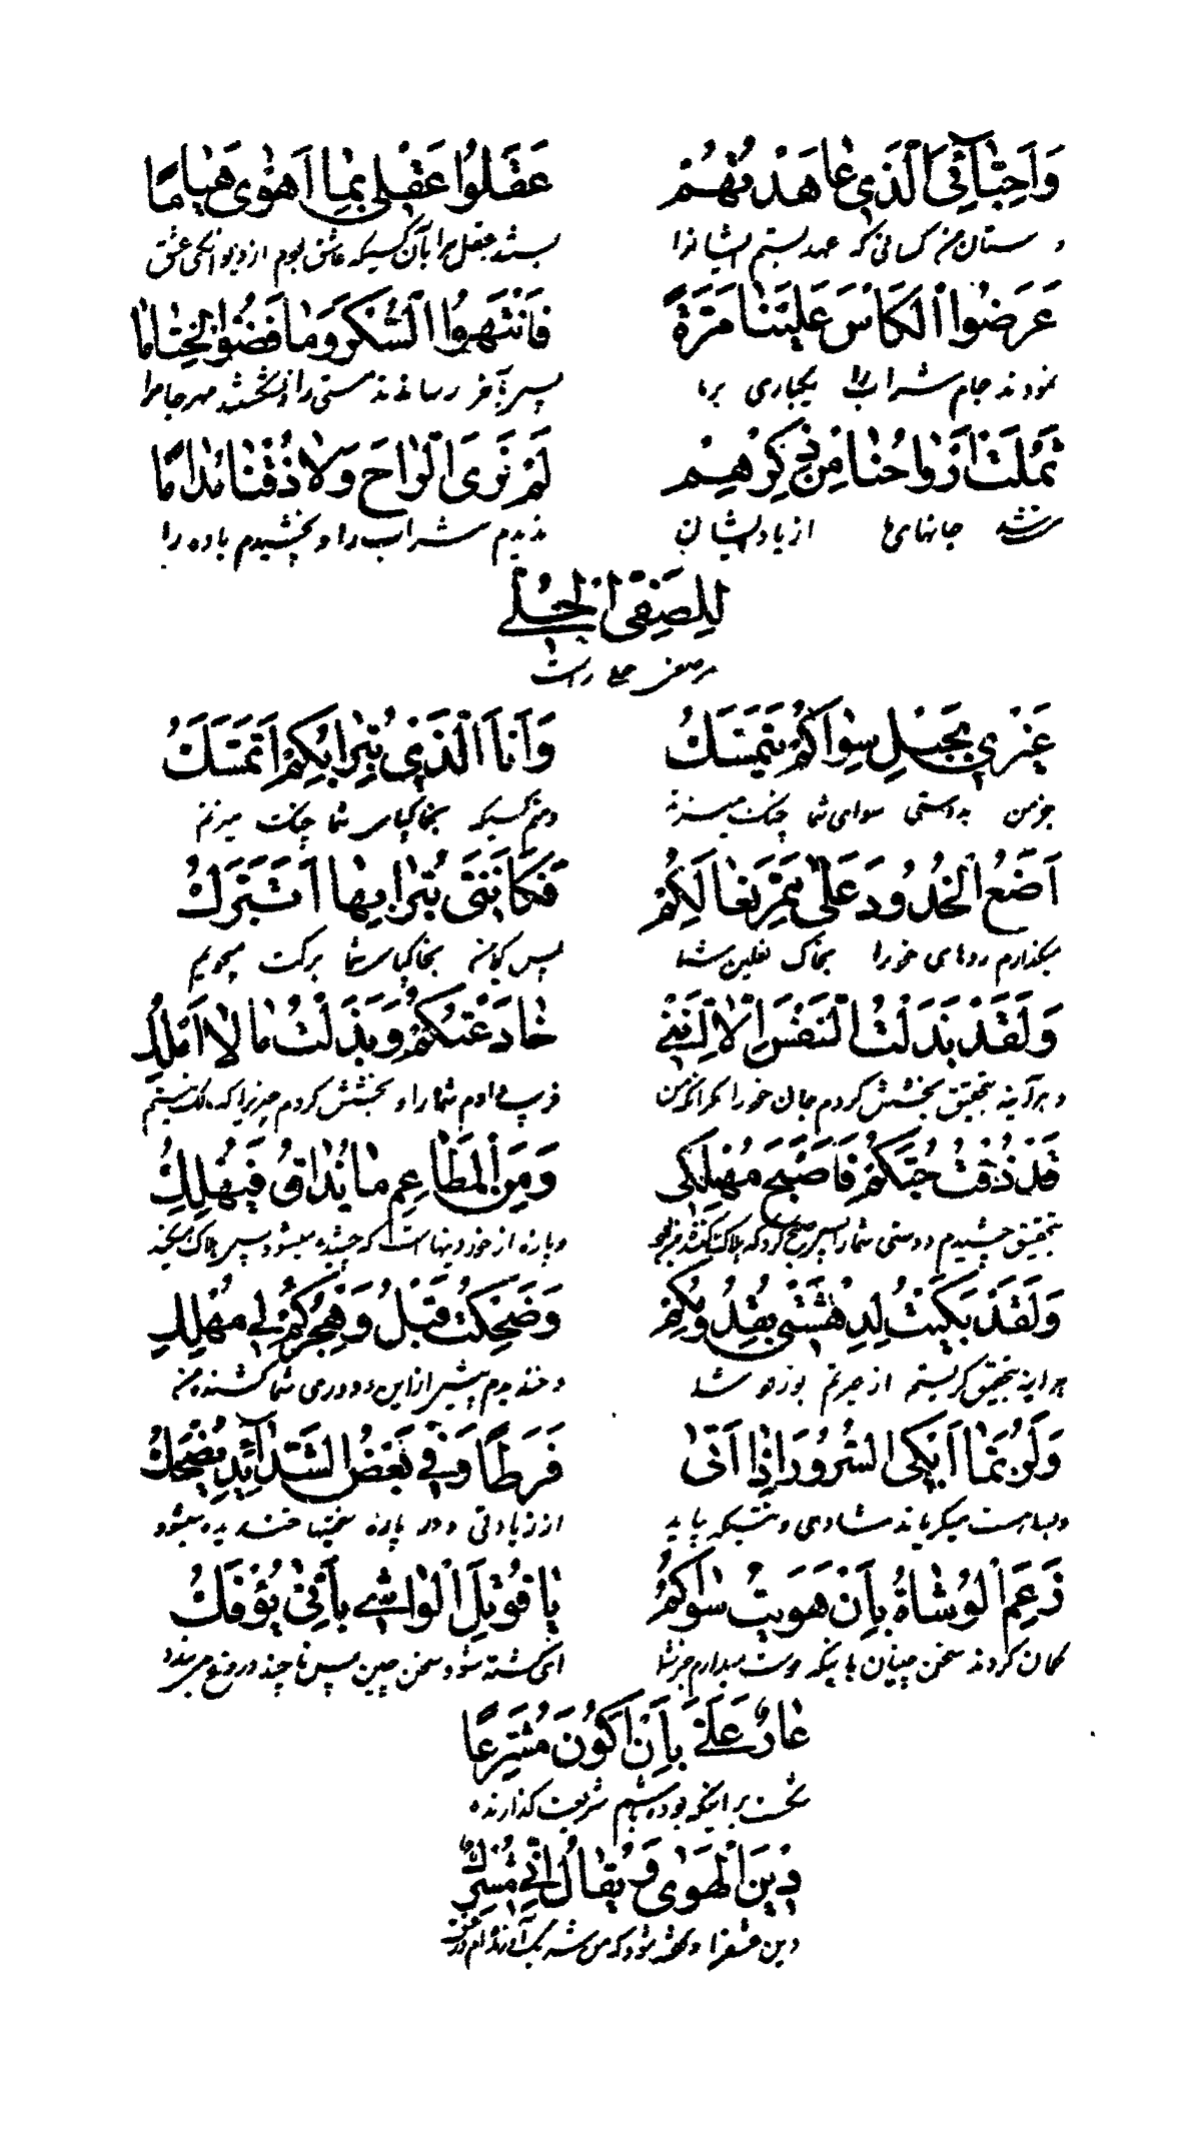 وَاَحِبّٰائِی الَّذَی عٰاهَدْتُهُمْ عَقَلُوا عَقْلی بِمٰا اَهْوٰی هَیٰامًا
دوستان من کسانی که عهد بستم ایشانرا بستند عقل مرا بآن کسیکه عاشق بودم از دیوانگی عشق
عَرَضُوا الْكَاْسَ عَلَیْنٰا مَرَّةً فَانْتَهَوُا السُّكْرَ وَمٰا فَضُّوا الْخِتٰامٰا
نمودند جام شراب را یکباری بر ما پس بآخر رساندند مستی را و نشکستند مهر جامرا
ثَمُلَتْ اَرْوٰاحُنٰا مِنْ ذِكْرِهِمْ لَمْ نَرَی الرّٰاحَ وَلاٰ ذُقْنٰا مُدٰامًا
سرشد جانهای ما از یاد ایشان ندیدم شراب را و نچشیدم باده را
لِلصَّفِیِّ الْحِلّی
مر صفی حلی راست
غَیْری بِحَبْلِ سِوٰاكُمُ یَتَمَسَّكُ وَاَنَا الَّذَی بِتُرٰابِكُمْ اَتَمَسَّكُ
جز من بدوستی سوای شما چنگ میزند ومنم کسیکه بخاک پای شما چنگ میزنم
اَضَعُ الْخُدُودَ عَلیٰ مَمَرِّ نِعٰالِكُمْ فَكَاَنَّنی بِتُرٰابِهٰا اَتَبَرَّكُ
میگذارم روهای خود را بخاک نعلین شما پس گویا من بخاک پای شما برکت میجویم
وَلَقَدْ بَذَلْتُ النَّفْسَ اِلاّٰ اِنَّنی خٰادَعْتُكُمْ وَبَذَلْتُ مٰا لاٰ اَمْلِكُ
و هرآینه بتحقیق بخشش کردم جان خود را مگر آنکه من فریب دادم شما را و بخشش کردم چیزیرا که مالک نیستم
قَدْ ذُقْتُ حُبَّكُمُ فَاَصْبَحَ مُهْلِكی وَمِنَ الْمَطٰاعِمِ مٰا یُذٰاقُ فَیُهْلِكُ
بتحقیق چشیدم دوستی شما را پس صبح کرد که هلاک کننده من و پاره از خوردنیها است که چشیده میشود پس هلاک میکند
وَلَقَدْ بَكَیْتُ لِدَهْشَتی بِقُدُومِكُمْ وَضَحِكْتُ قَبْلُ وَهَجْرُكُمْ لی مُهْلِكُ
هر اینه بتحقیق گریستم از حیرتم و خندیدم پیش از این و دوری شما کشنده من
وَلَرُبَّمٰا اَبْكَی السُّرُورُ اِذٰا اَتیٰ فَرَطًا وَفی بَعْضِ الشَّدٰائِدِ یُضْحَكُ
و بسا است میگریاند شادی وقتیکه بیاید از زیادتی و در پاره سختیها خندیده میشود
زَعَمَ الْوُشٰاةُ بِاَنْ هَوَیْتُ سِوٰاكُمُ یٰا قُوتِلَ الْوٰاشی بِاَنّیٰ یُؤْفَكُ
گمان کردند سخن چینان باینکه دوست میدارم جز شما ای کشته شود سخن چین پس تا چند دروغ میزند
عٰارٌ عَلَیَّ بِاَنْ اَكُونَ مُشَرِّعًا
بر اینکه بوده باشم شریعت گذارنده
دینَ الْهَوٰی وَیُقٰالُ اِنّی مُشْرِكٌ
دین عشق را و گفته شود که من شریک